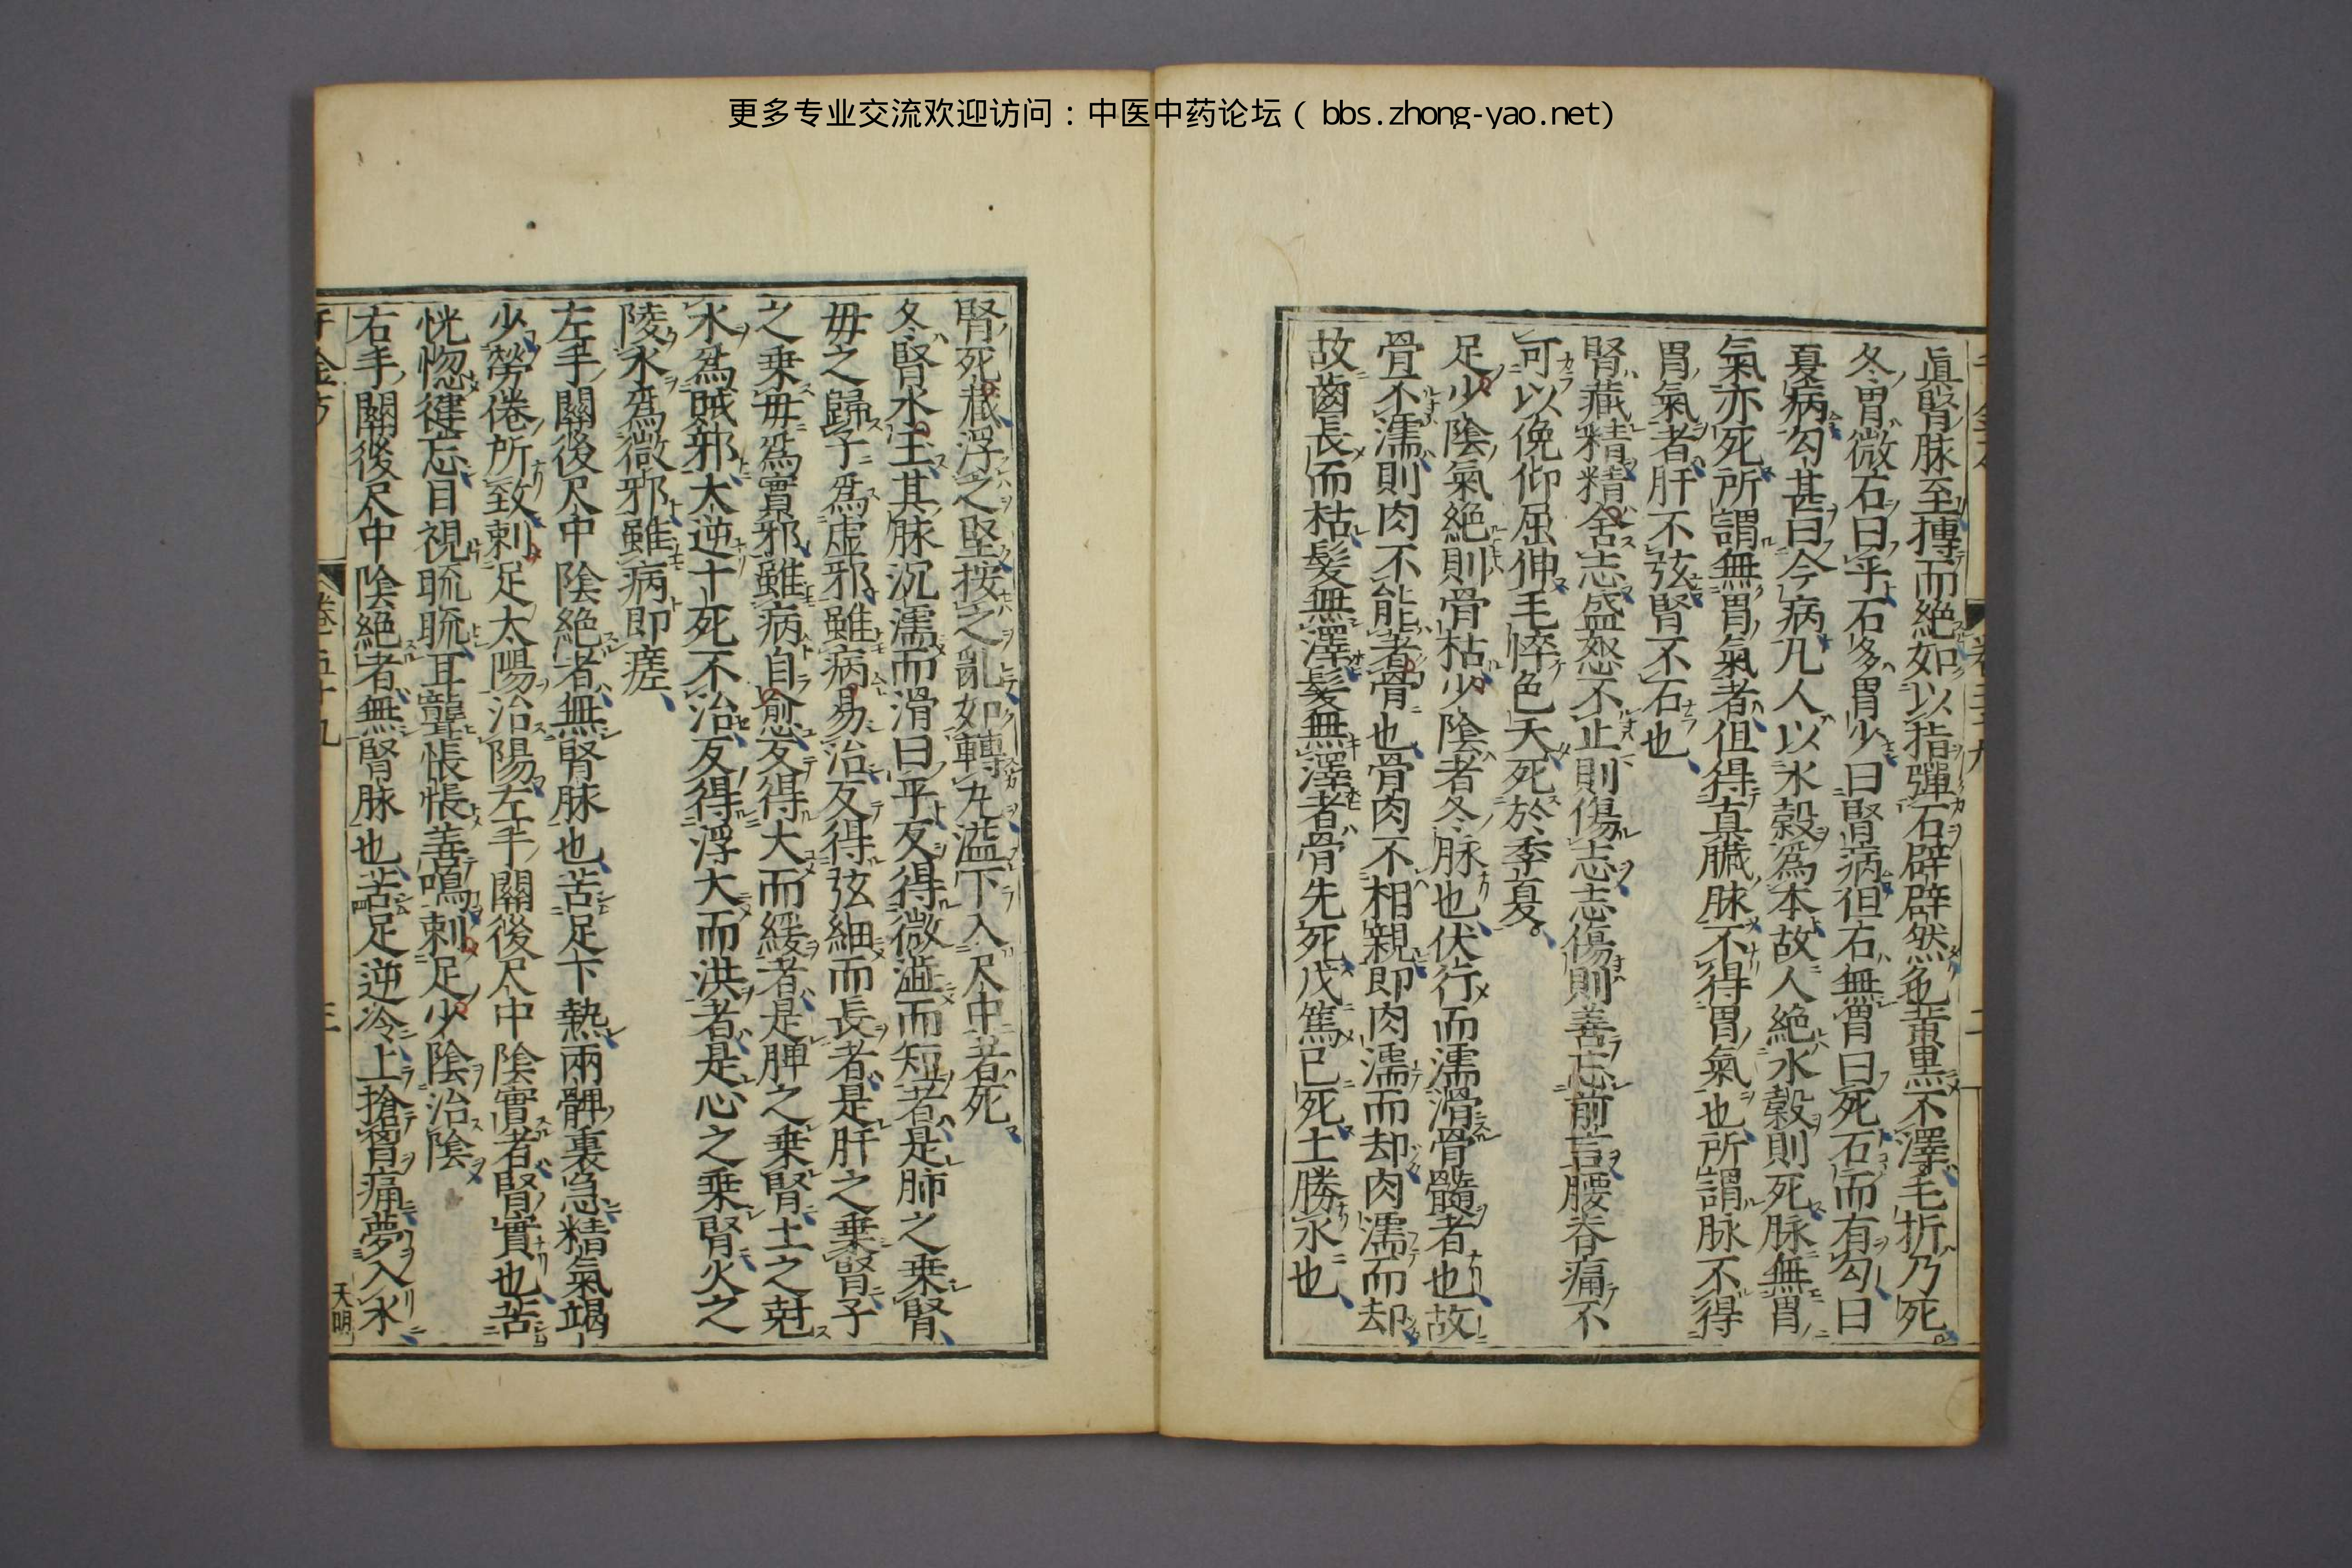 更多专业交流欢迎访问：中医中药论坛（bbs.zhong-yao.net）
眞腎脉至摶而絶如以指彈石辟辟然色黃黒不澤毛折乃死
冬胃微石曰平石多胃少曰腎病但石無胃曰死石而有勾曰
夏病勾甚曰今病凢人以水糓爲本故人絶水糓則死脉無胃
氣亦死所謂無胃氣者但得真臓脉不得胃氣也所謂脉不得
胃氣者肝不弦腎不石也
腎藏精精舎志盛怒不止則傷志志傷則善忘前言腰脊痛不
可以俛仰屈伸毛悴色夭死於季夏
足少陰氣絶則骨枯少陰者冬脉也伏行而濡滑骨髓者也故
骨不濡則肉不能著骨也骨肉不相親即肉濡而却肉濡而却
故齒長而枯髮無澤髮無澤者骨先死戊篤已死土勝水也
腎死藏浮之堅按之亂如轉丸溢下入尺中者死
冬腎水王其脉沉濡而滑曰平反得微濇而短者是肺之乗腎
毋之歸子爲虚邪雖病易治反得弦細而長者是肝之乗腎子
之乗毋爲實邪雖病自愈反得大而緩者是脾之乗腎土之尅
水爲賊邪大逆十死不治反得浮大而洪者是心之乗腎火之
陵水爲微邪雖病即瘥
左手關後尺中陰絶者無腎脉也苦足下熱兩髀裏急精氣竭
少勞倦所致刺足太陽治陽左手關後尺中陰實者腎實也苦
恍惚健忘目視䀮䀮耳聾悵悵善鳴刺足少陰治陰
右手關後尺中陰絶者無腎脉也苦足逆冷上搶胷痛夢入水
千金方
卷五十九
三
天明